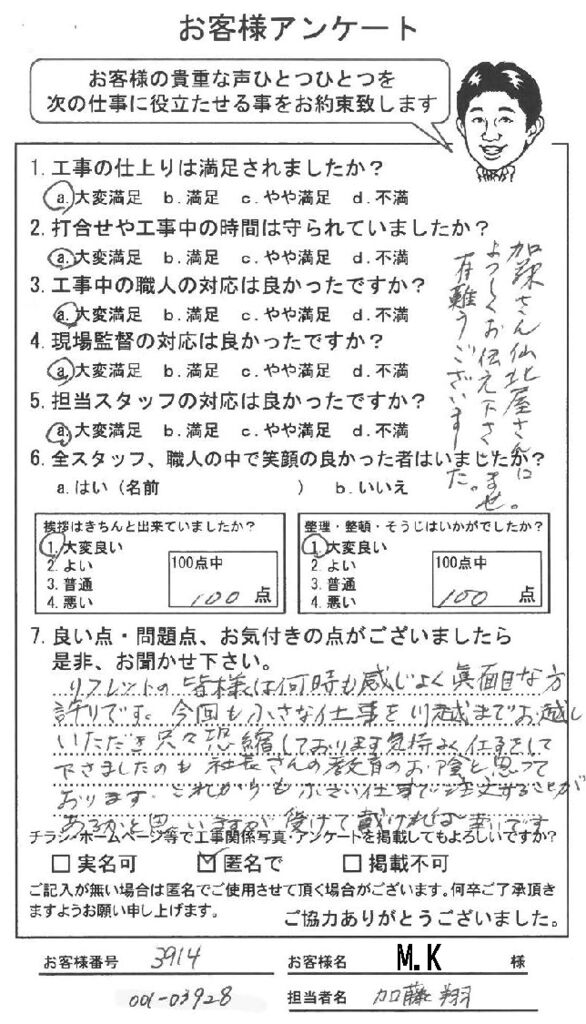 お客様アンケート
お客様の貴重な声ひとつひとつを
次の仕事に役立たせる事をお約束致します
1. 工事の仕上りは満足されましたか？
a. 大変満足 b. 満足 c. やや満足 d. 不満
2. 打合せや工事中の時間は守られていましたか？
a. 大変満足 b. 満足 c. やや満足 d. 不満
3. 工事中の職人の対応は良かったですか？
a. 大変満足 b. 満足 c. やや満足 d. 不満
4. 現場監督の対応は良かったですか？
a. 大変満足 b. 満足 c. やや満足 d. 不満
5. 担当スタッフの対応は良かったですか？
a. 大変満足 b. 満足 c. やや満足 d. 不満
加藤さん仙北屋さんに
よろしくお伝え下さいませ。
有難うございました。
6. 全スタッフ、職人の中で笑顔の良かった者はいましたか？
a. はい（名前 ） b. いいえ
挨拶はきちんと出来ていましたか？
1. 大変良い
2. よい
3. 普通
4. 悪い
100点中
100 点
整理・整頓・そうじはいかがでしたか？
1. 大変良い
2. よい
3. 普通
4. 悪い
100点中
100 点
7. 良い点・問題点、お気付きの点がございましたら
是非、お聞かせ下さい。
リフレットの皆様は何時も感じよく真面目な方
許りです。今回も小さな仕事を川越までお越し
いただき只々恐縮しております気持よく仕事をして
下さましたのも社長さんの教育のお陰と思って
おります これからも小さい仕事で注文することが
あるかと思いますが受けて戴ければ幸いです
チラシ・ホームページ等で工事関係写真・アンケートを掲載してもよろしいですか？
□ 実名可 ☑ 匿名で □ 掲載不可
ご記入が無い場合は匿名でご使用させて頂く場合がございます。何卒ご了承頂き
ますようお願い申し上げます。
ご協力ありがとうございました。
お客様番号 3914
お客様名 M.K 様
001-03928
担当者名 加藤 翔